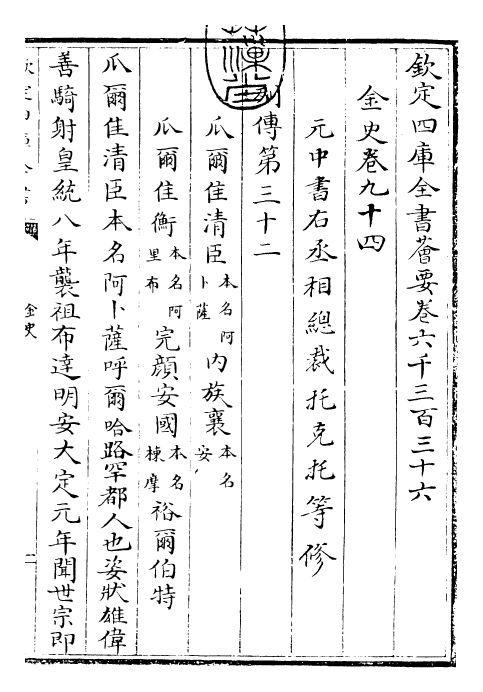 欽定四庫全書薈要卷六千三百三十六
金史卷九十四
元中書右丞相總裁托克托等修
列傳第三十二
瓜爾佳清臣本名阿卜薩 內族襄本名安
瓜爾佳衡本名阿里布 完顏安國本名棟摩 裕爾伯特
瓜爾佳清臣本名阿卜薩呼爾哈路罕都人也姿狀雄偉
善騎射皇統八年襲祖布達明安大定元年聞世宗即
欽定四庫全書
金史